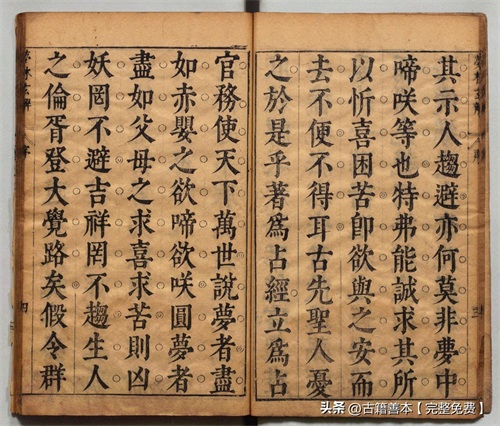 其示人趨避亦何莫非夢中
啼咲等也特弗能誠求其所
以忻喜困苦卽欲與之安而
去不便不得耳古先聖人憂
之於是乎著爲占經立爲占
三
官務使天下萬世說夢者盡
如赤嬰之欲啼欲咲圓夢者
盡如父母之求喜求苦則凶
妖罔不避吉祥罔不趨生人
之倫胥登大覺路矣假令群
夢林玄解 序 四
头条 @古籍善本【完整免费】